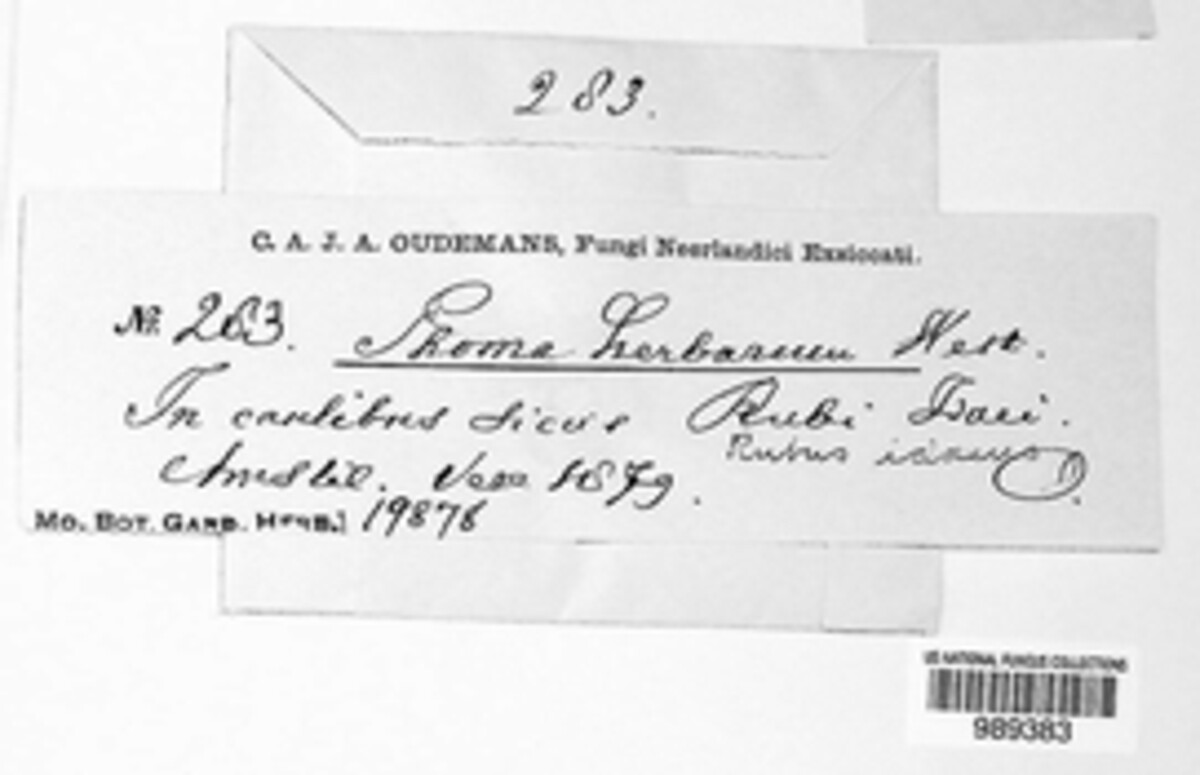 283.
C. A. J. A. OUDEMANS, Fungi Neerlandici Exsiccati.
№. 283. Phoma herbarum West.
In caulibus siccis Rubi Idaei.
Rubus idaeus
Amstel. 1879.
MO. BOT. GARD. HERB.] 19878
US NATIONAL FUNGUS COLLECTIONS
989383